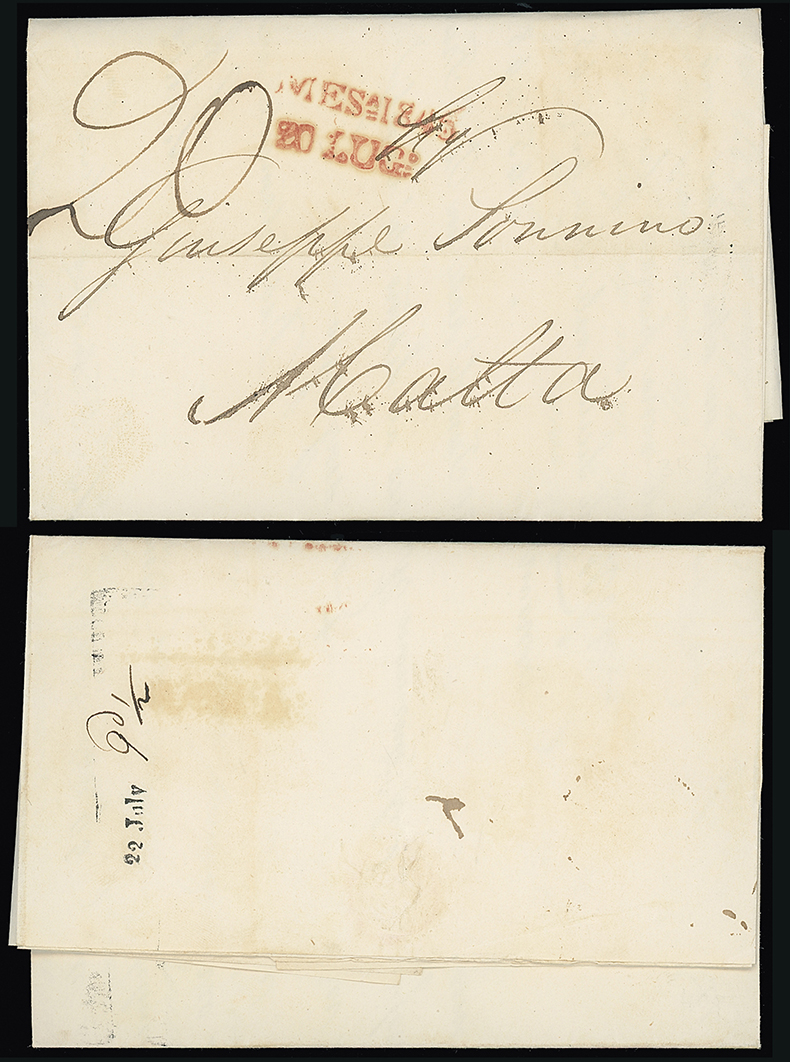 20
MESA 1842
20 LUG:
Sig
Giuseppe Sonnino
Malta
6 1/2
22 July